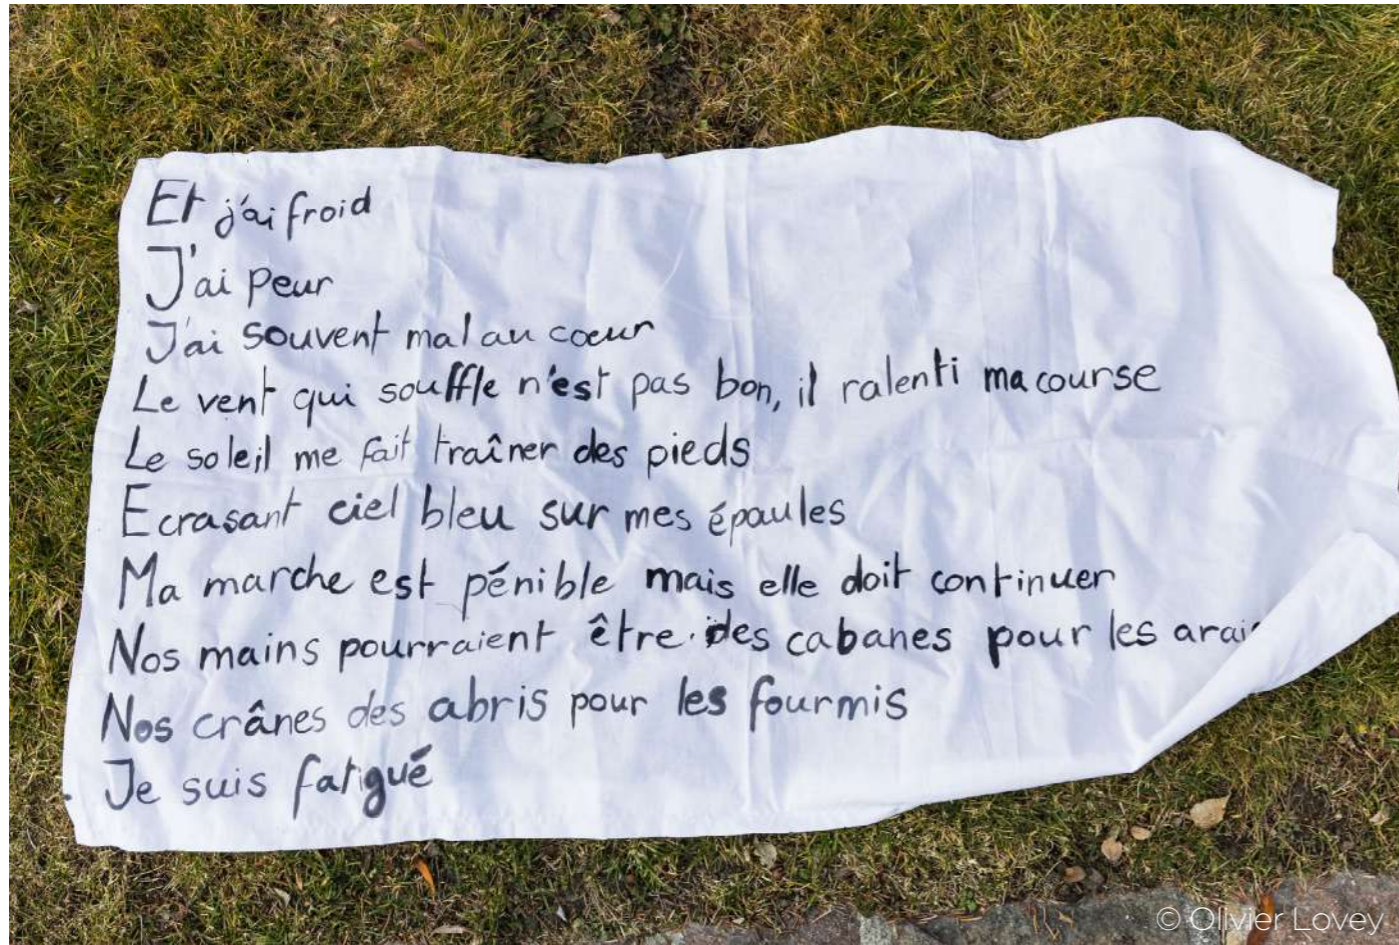 Et j'ai froid
J'ai peur
J'ai souvent mal au coeur
Le vent qui souffle n'est pas bon, il ralenti ma course
Le soleil me fait traîner des pieds
Ecrasant ciel bleu sur mes épaules
Ma marche est pénible mais elle doit continuer
Nos mains pourraient être des cabanes pour les
Nos crânes des abris pour les fourmis
Je suis fatigué
© Olivier Lovey